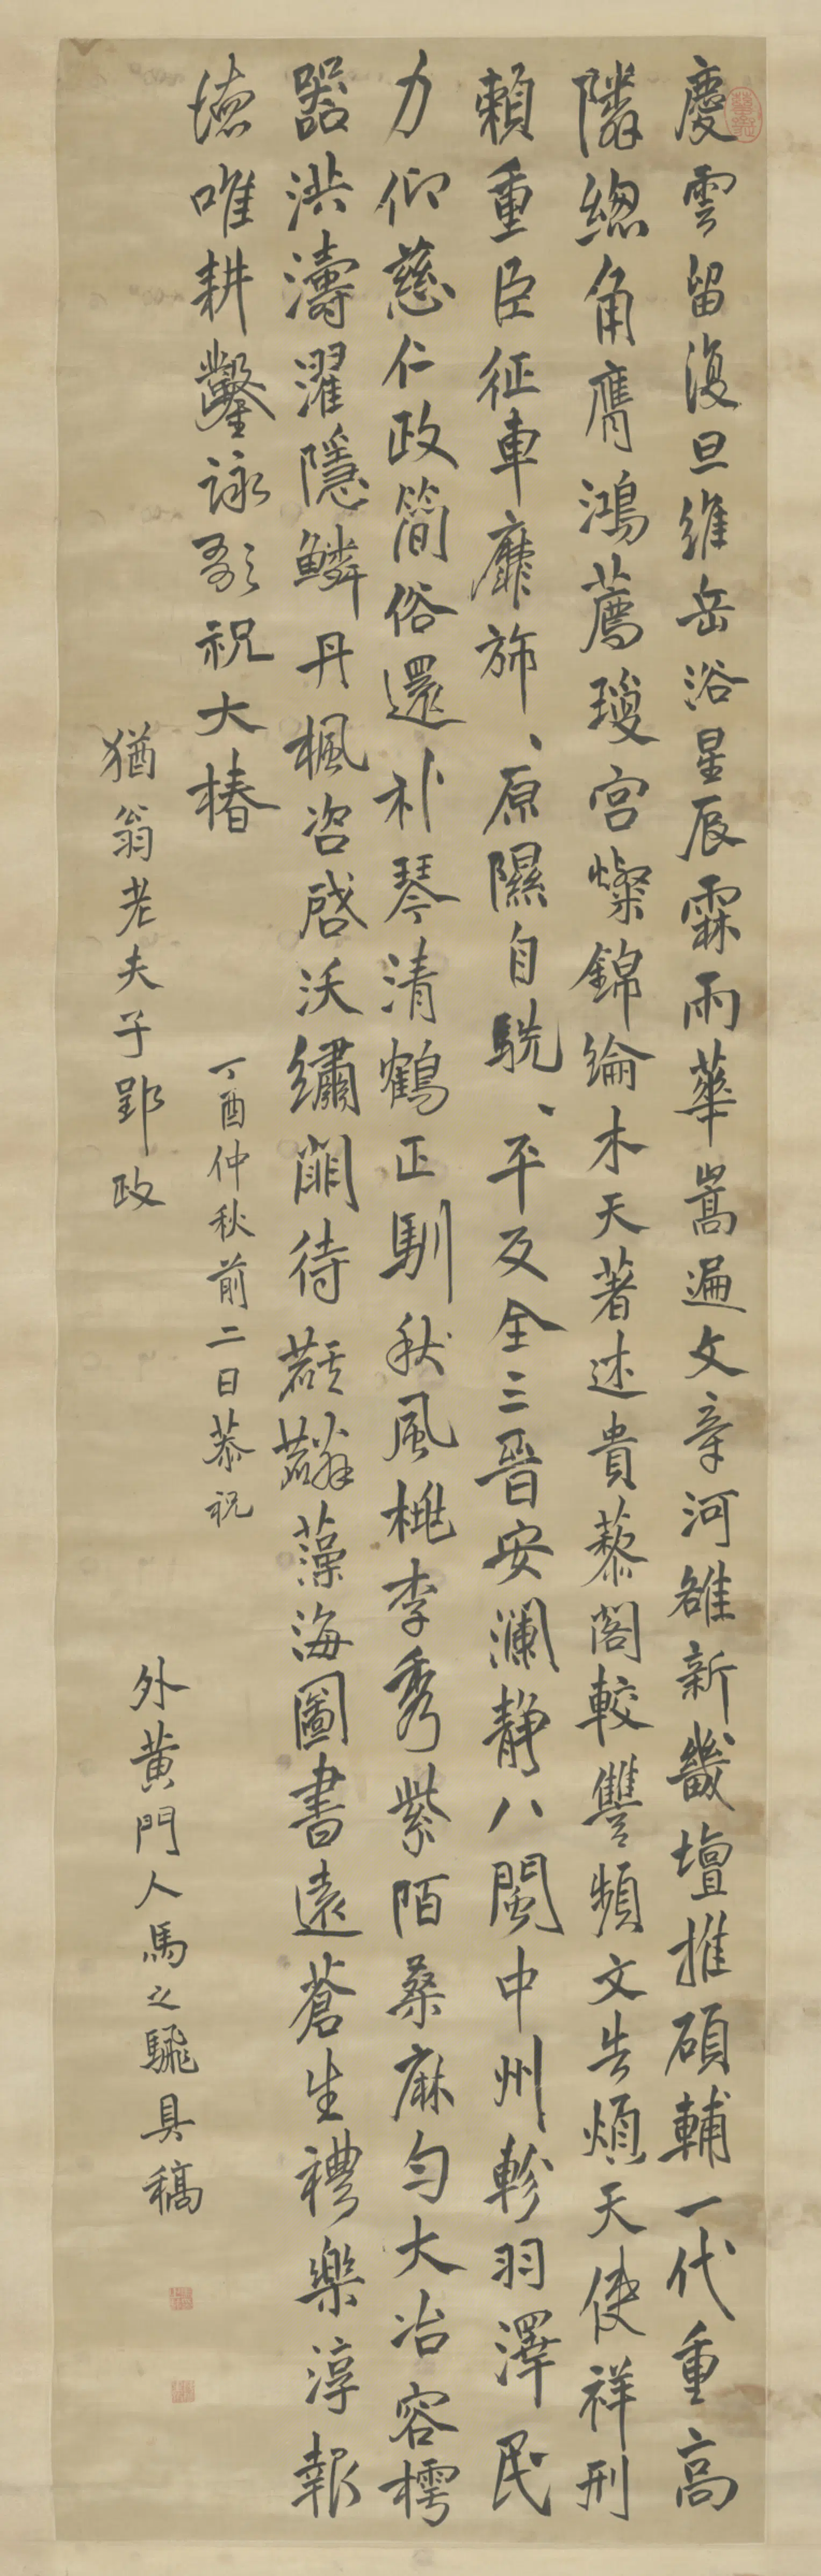 慶雲留復旦維岳浴星辰霖雨華嵩遍文章河雒新畿壇推碩輔一代重高
隣總角膺鴻薦瓊宮燦錦綸木天著述貴藜閣較讐頻文告煩天使祥刑
賴重臣征車靡施、原隰自駪、平反全三晉安瀾靜八閩中州軫羽澤民
力仰慈仁政簡俗還朴琴清鶴正馴秋風桃李秀紫陌桑麻勻大冶容樗
器洪濤濯隱鱗丹楓咨啓沃繡闈待藻海圖書遠蒼生禮樂淳報
德唯耕鑿詠歌祝大椿
丁酉仲秋前二日恭祝
猶翁老夫子郢政
外黃門人馬之騛具稿